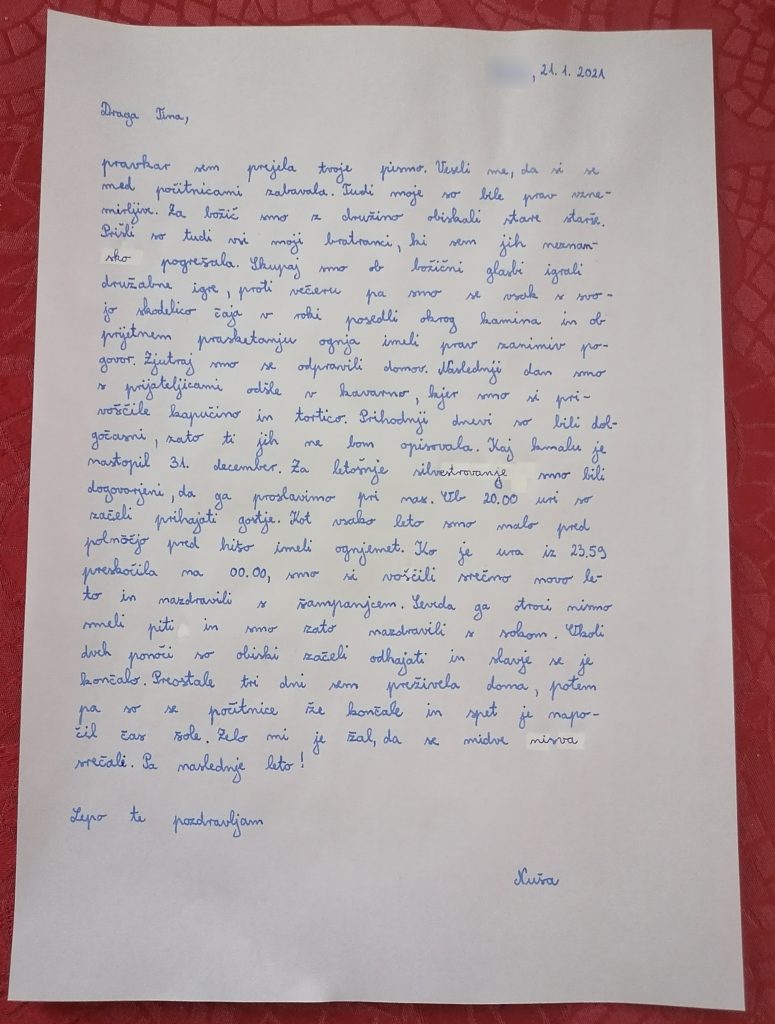 , 21. 1. 2021
Draga Tina,
pravkar sem prejela tvoje pismo. Veseli me, da si se
med počitnicami zabavala. Tudi moje so bile prav vzne-
mirljive. Za božič smo z družino obiskali stare starše.
Prišli so tudi vsi moji bratranci, ki sem jih neznan-
sko pogrešala. Skupaj smo ob božični glasbi igrali
družabne igre, proti večeru pa smo se vsak s svo-
jo skodelico čaja v roki posedli okrog kamina in ob
prijetnem prasketanju ognja imeli prav zanimiv po-
govor. Zjutraj smo se odpravili domov. Naslednji dan smo
s prijateljicami odšle v kavarno, kjer smo si pri-
voščile kapučino in tortico. Prihodnji dnevi so bili dol-
gočasni, zato ti jih ne bom opisovala. Kaj kmalu je
nastopil 31. december. Za letošnje silvestrovanje smo bili
dogovorjeni, da ga proslavimo pri nas. Ob 20.00 uri so
začeli prihajati gostje. Kot vsako leto smo malo pred
polnočjo pred hišo imeli ognjemet. Ko je ura iz 23.59
preskočila na 00.00, smo si voščili srečno novo le-
to in nazdravili s šampanjcem. Seveda ga otroci nismo
smeli piti in smo zato nazdravili s sokom. Okoli
dveh ponoči so obiski začeli odhajati in slavje se je
končalo. Preostale tri dni sem preživela doma, potem
pa so se počitnice že končale in spet je napo-
čil čas šole. Zelo mi je žal, da se midve nisva
srečali. Pa naslednje leto!
Lepo te pozdravljam
Nuša